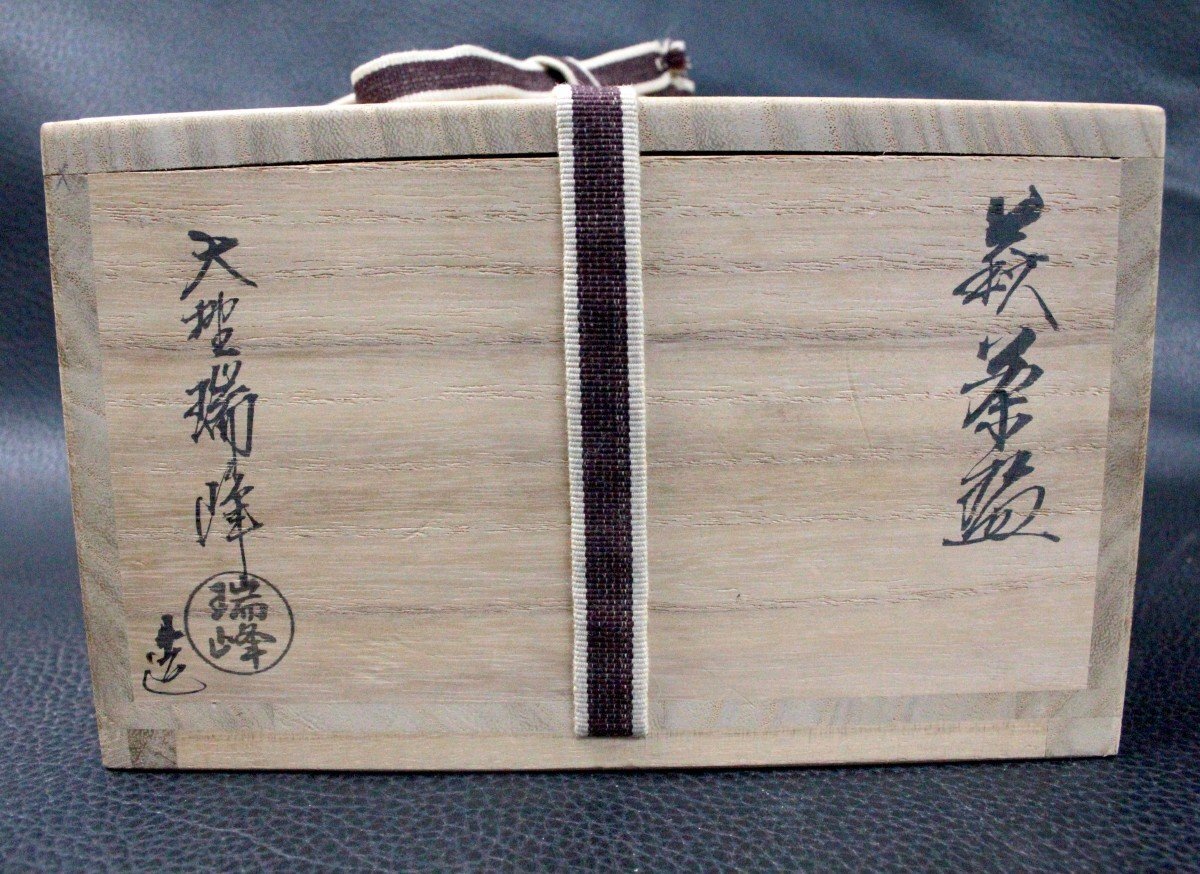 萩茶盌
大野瑞峰
瑞峰
造